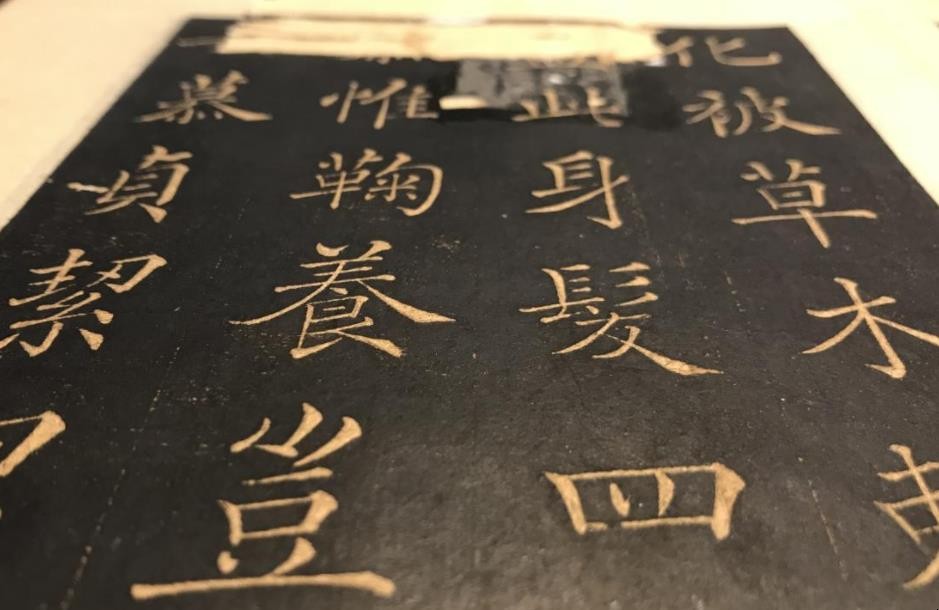 化被草木
此身髮四
惟鞠養豈
慕貞絜